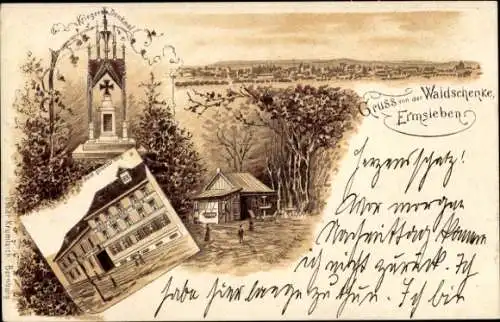 Krieger-Denkmal
Gruss von der Waldschenke,
Ermsleben
Herzensschatz!
Vor morgen
Nachmittag komme
ich nicht zurück. Ich
habe hier lange zu thun. Ich bin